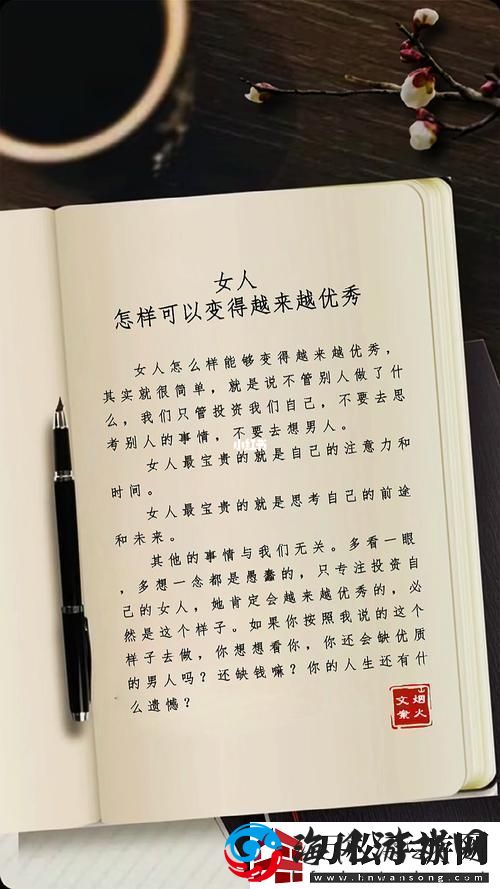 女人
怎样可以变得越来越优秀
女人怎么样能够变得越来越优秀，
其实就很简单，就是说不管别人做了什
么，我们只管投资我们自己，不要去思
考别人的事情，不要去想男人。
女人最宝贵的就是自己的注意力和
时间。
女人最宝贵的就是思考自己的前途
和未来。
其他的事情与我们无关。多看一眼
，多想一念都是愚蠢的，只专注投资自
己的女人，她肯定会越来越优秀的，必
然是这个样子。如果你按照我说的这个
样子去做，你想想看你，你还会缺优质
的男人吗？还缺钱嘛？你的人生还有什
么遗憾？
小红书
烟火
文案
www.hnwansong.com